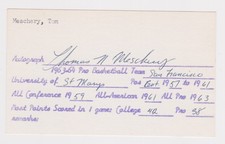 Meschery, Tom
Autograph Thomas N Meschery
1963-64 Pro Basketball Team San Francisco
University of St Marys Pos 1957 to 1961
All Conference 1959 All American 1961 All Pro 1963
Most Points Scored in 1 game; College 40 Pro 38
Remarks